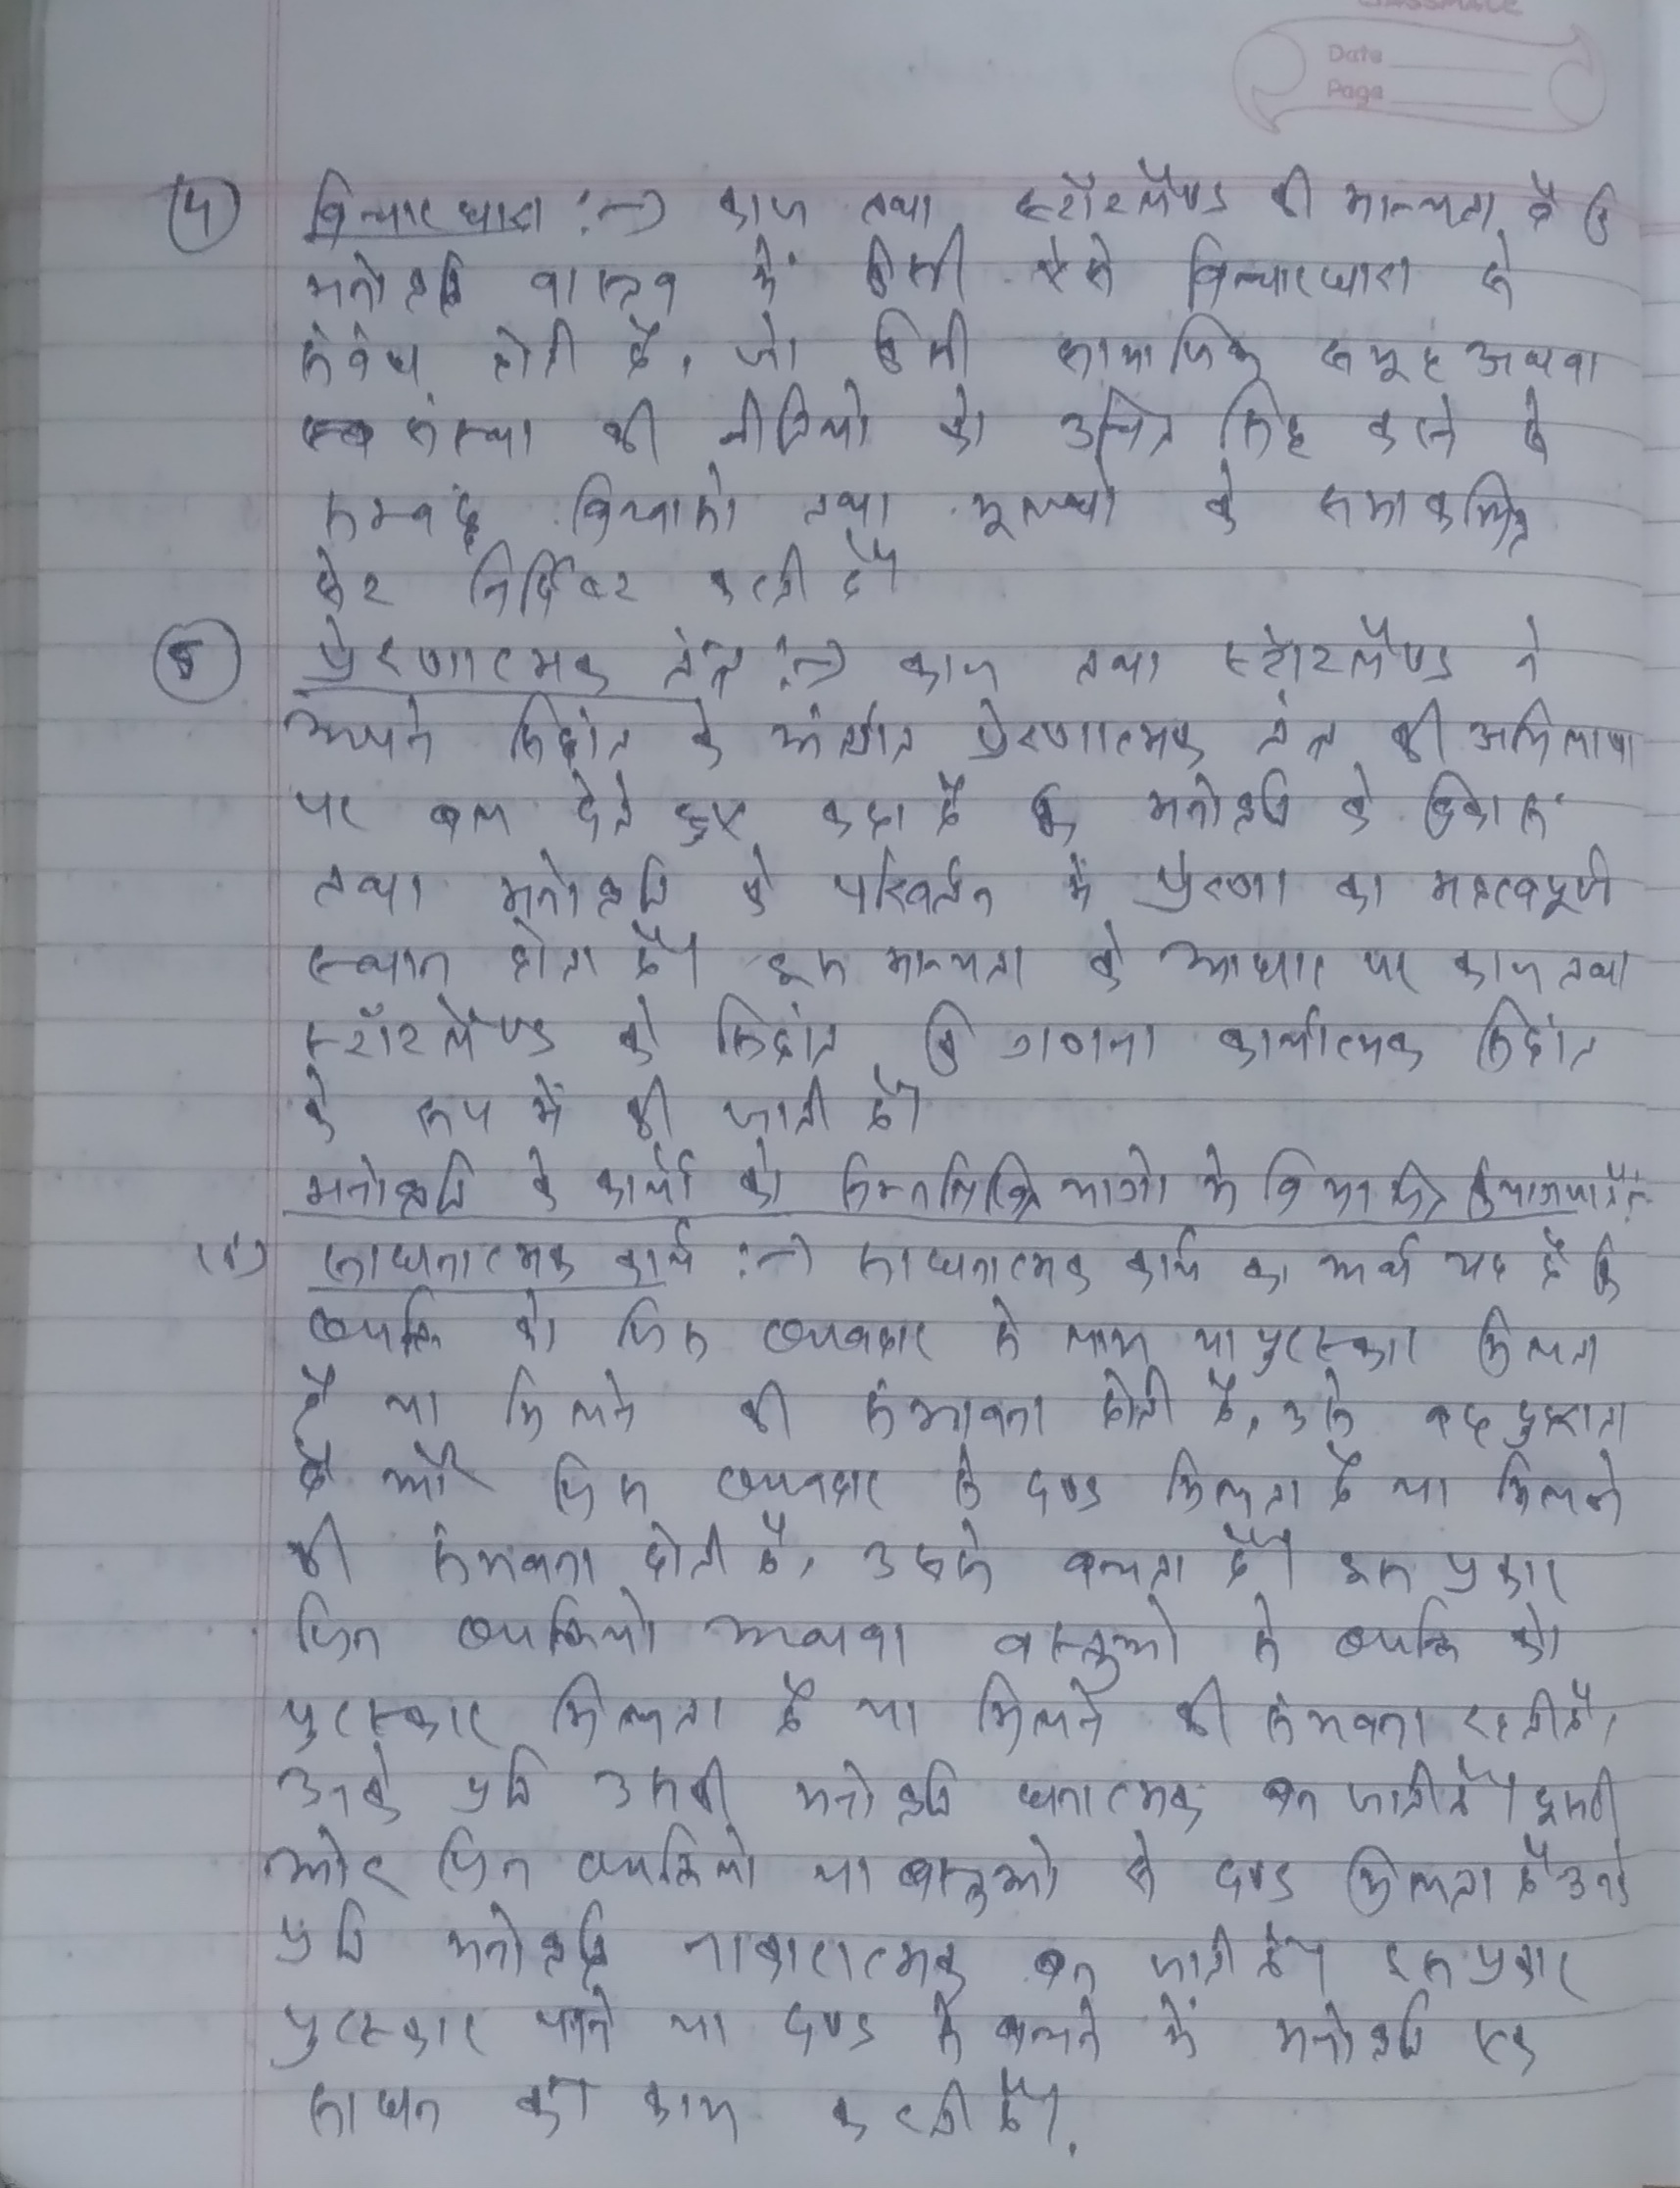 classmate
Date
Page
(4) विचारधारा :→ काज तथा स्टॉरलैण्ड की मान्यता है कि
मनोवृति वास्तव में किसी ऐसे विचारधारा से
संबंध होती है, जो किसी सामाजिक समूह अथवा
संस्था की नीतियो को उचित सिद्ध करने के
सम्बंद्ध विश्वासो तथा मूल्यो के समाकलित
करती है।
(5) प्रेरणात्मक तंत्र :→ काज तथा स्टॉरलैण्ड ने
अपने सिद्धांत के अंर्तगत प्रेरणात्मक तंत्र की अभिलाषा
पर बल देते हुए कहा है कि मनोवृति के विकास
तथा मनोवृति के परिवर्तन में प्रेरणा का महत्वपूर्ण
स्थान होता है। इस मान्यता के आधार पर काज तथा
स्टॉरलैण्ड के सिद्धांत कि गणना कार्यात्मक सिद्धांत
के रूप में की जाती है।
मनोवृति के कार्यो को निम्नलिखित भागो मे विभाजित किया गया है:
(i) साधनात्मक कार्य :→ साधनात्मक कार्य का अर्थ यह है कि
व्यक्ति को जिस व्यवहार से लाभ या पुरस्कार मिलता
है या मिलने की संभावना होती है, उसे वह दुहराता
है और जिस व्यवहार से दण्ड मिलता है या मिलने
की संभवना होती है, उससे बचता है। इस प्रकार
जिन व्यक्तियो अथवा वस्तुओ से व्यक्ति को
पुरस्कार मिलता है या मिलने की संभवना रहती है,
उनके प्रति उसकी मनोवृति धनात्मक बन जाती है। दूसरी
ओर जिन व्यक्तियो या वस्तुओ से दण्ड मिलता है उनके
प्रति मनोवृति नाकारात्मक बन जाती है। इस प्रकार
पुरस्कार पाने या दण्ड से बचने में मनोवृति एक
साधन का काम करती है।